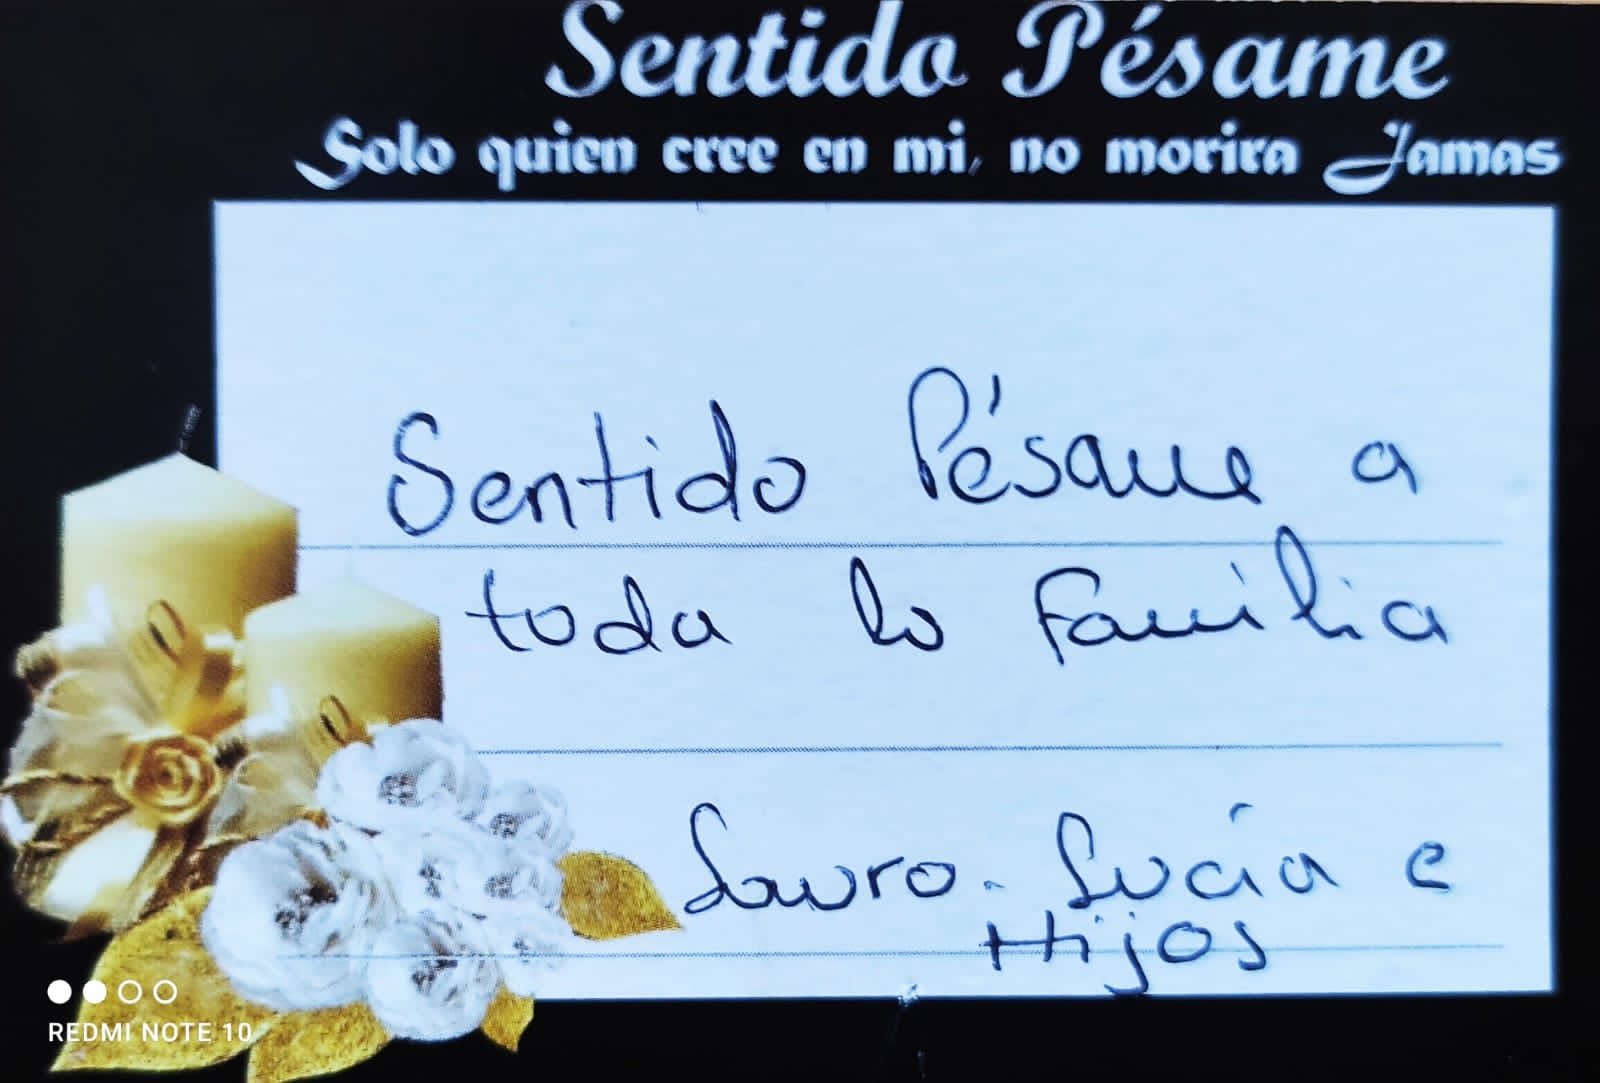 Sentido Pésame
Solo quien cree en mi, no morira Jamas
Sentido Pésame a
toda la Familia
Lauro. Lucía e
Hijos
REDMI NOTE 10